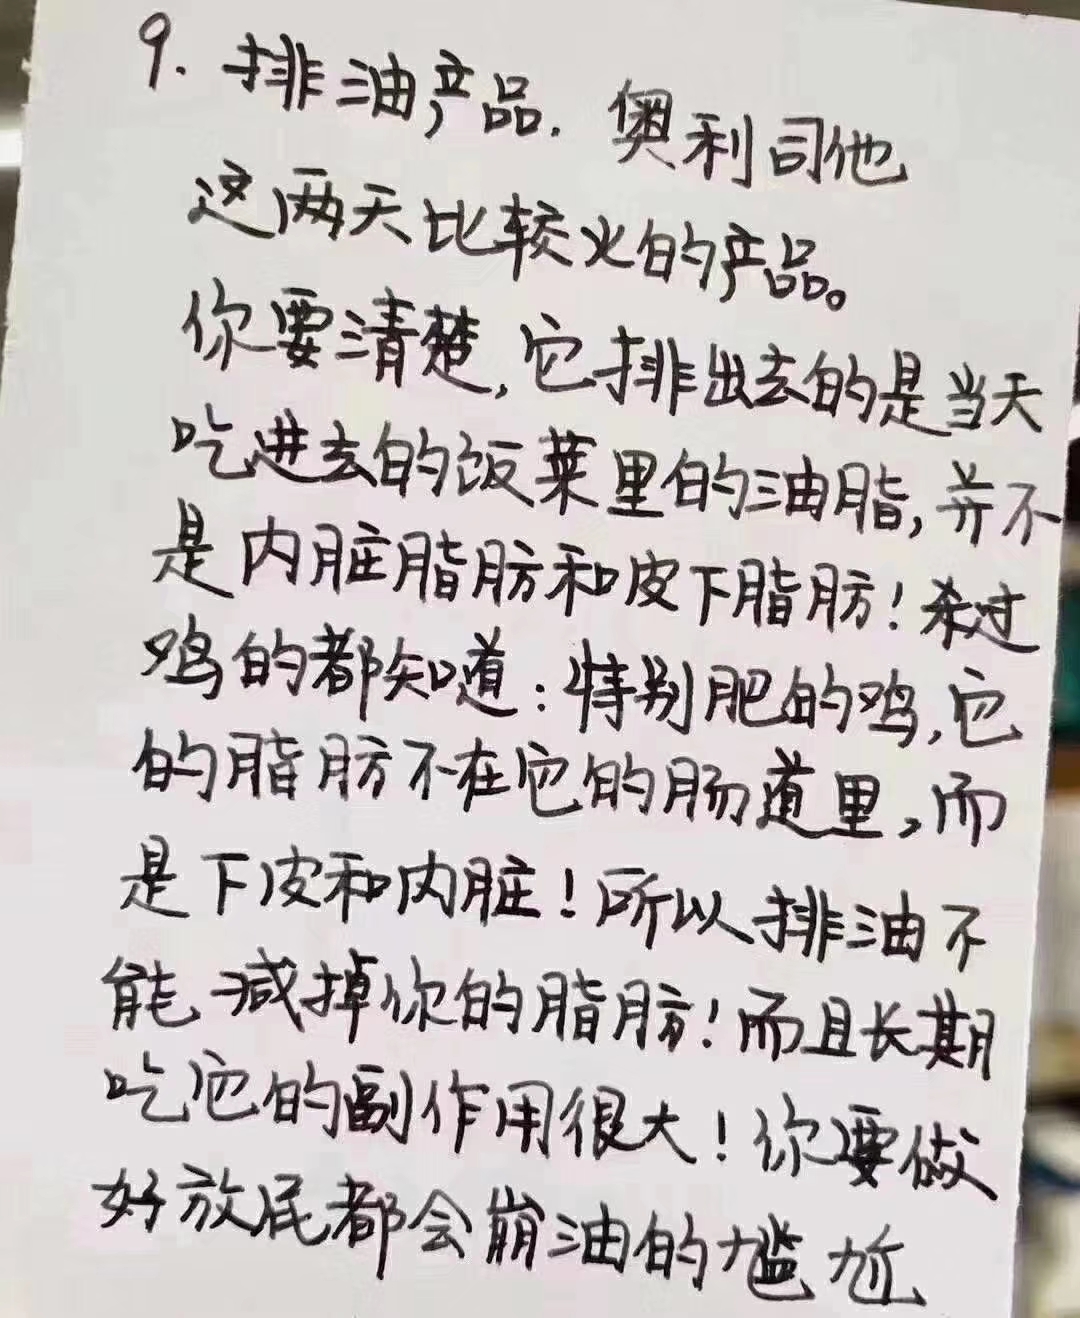 9. 排油产品. 奥利司他
这两天比较火的产品。
你要清楚,它排出去的是当天
吃进去的饭菜里的油脂,并不
是内脏脂肪和皮下脂肪!杀过
鸡的都知道:特别肥的鸡,它
的脂肪不在它的肠道里,而
是下皮和内脏!所以排油不
能减掉你的脂肪!而且长期
吃它的副作用很大!你要做
好放屁都会崩油的尴尬